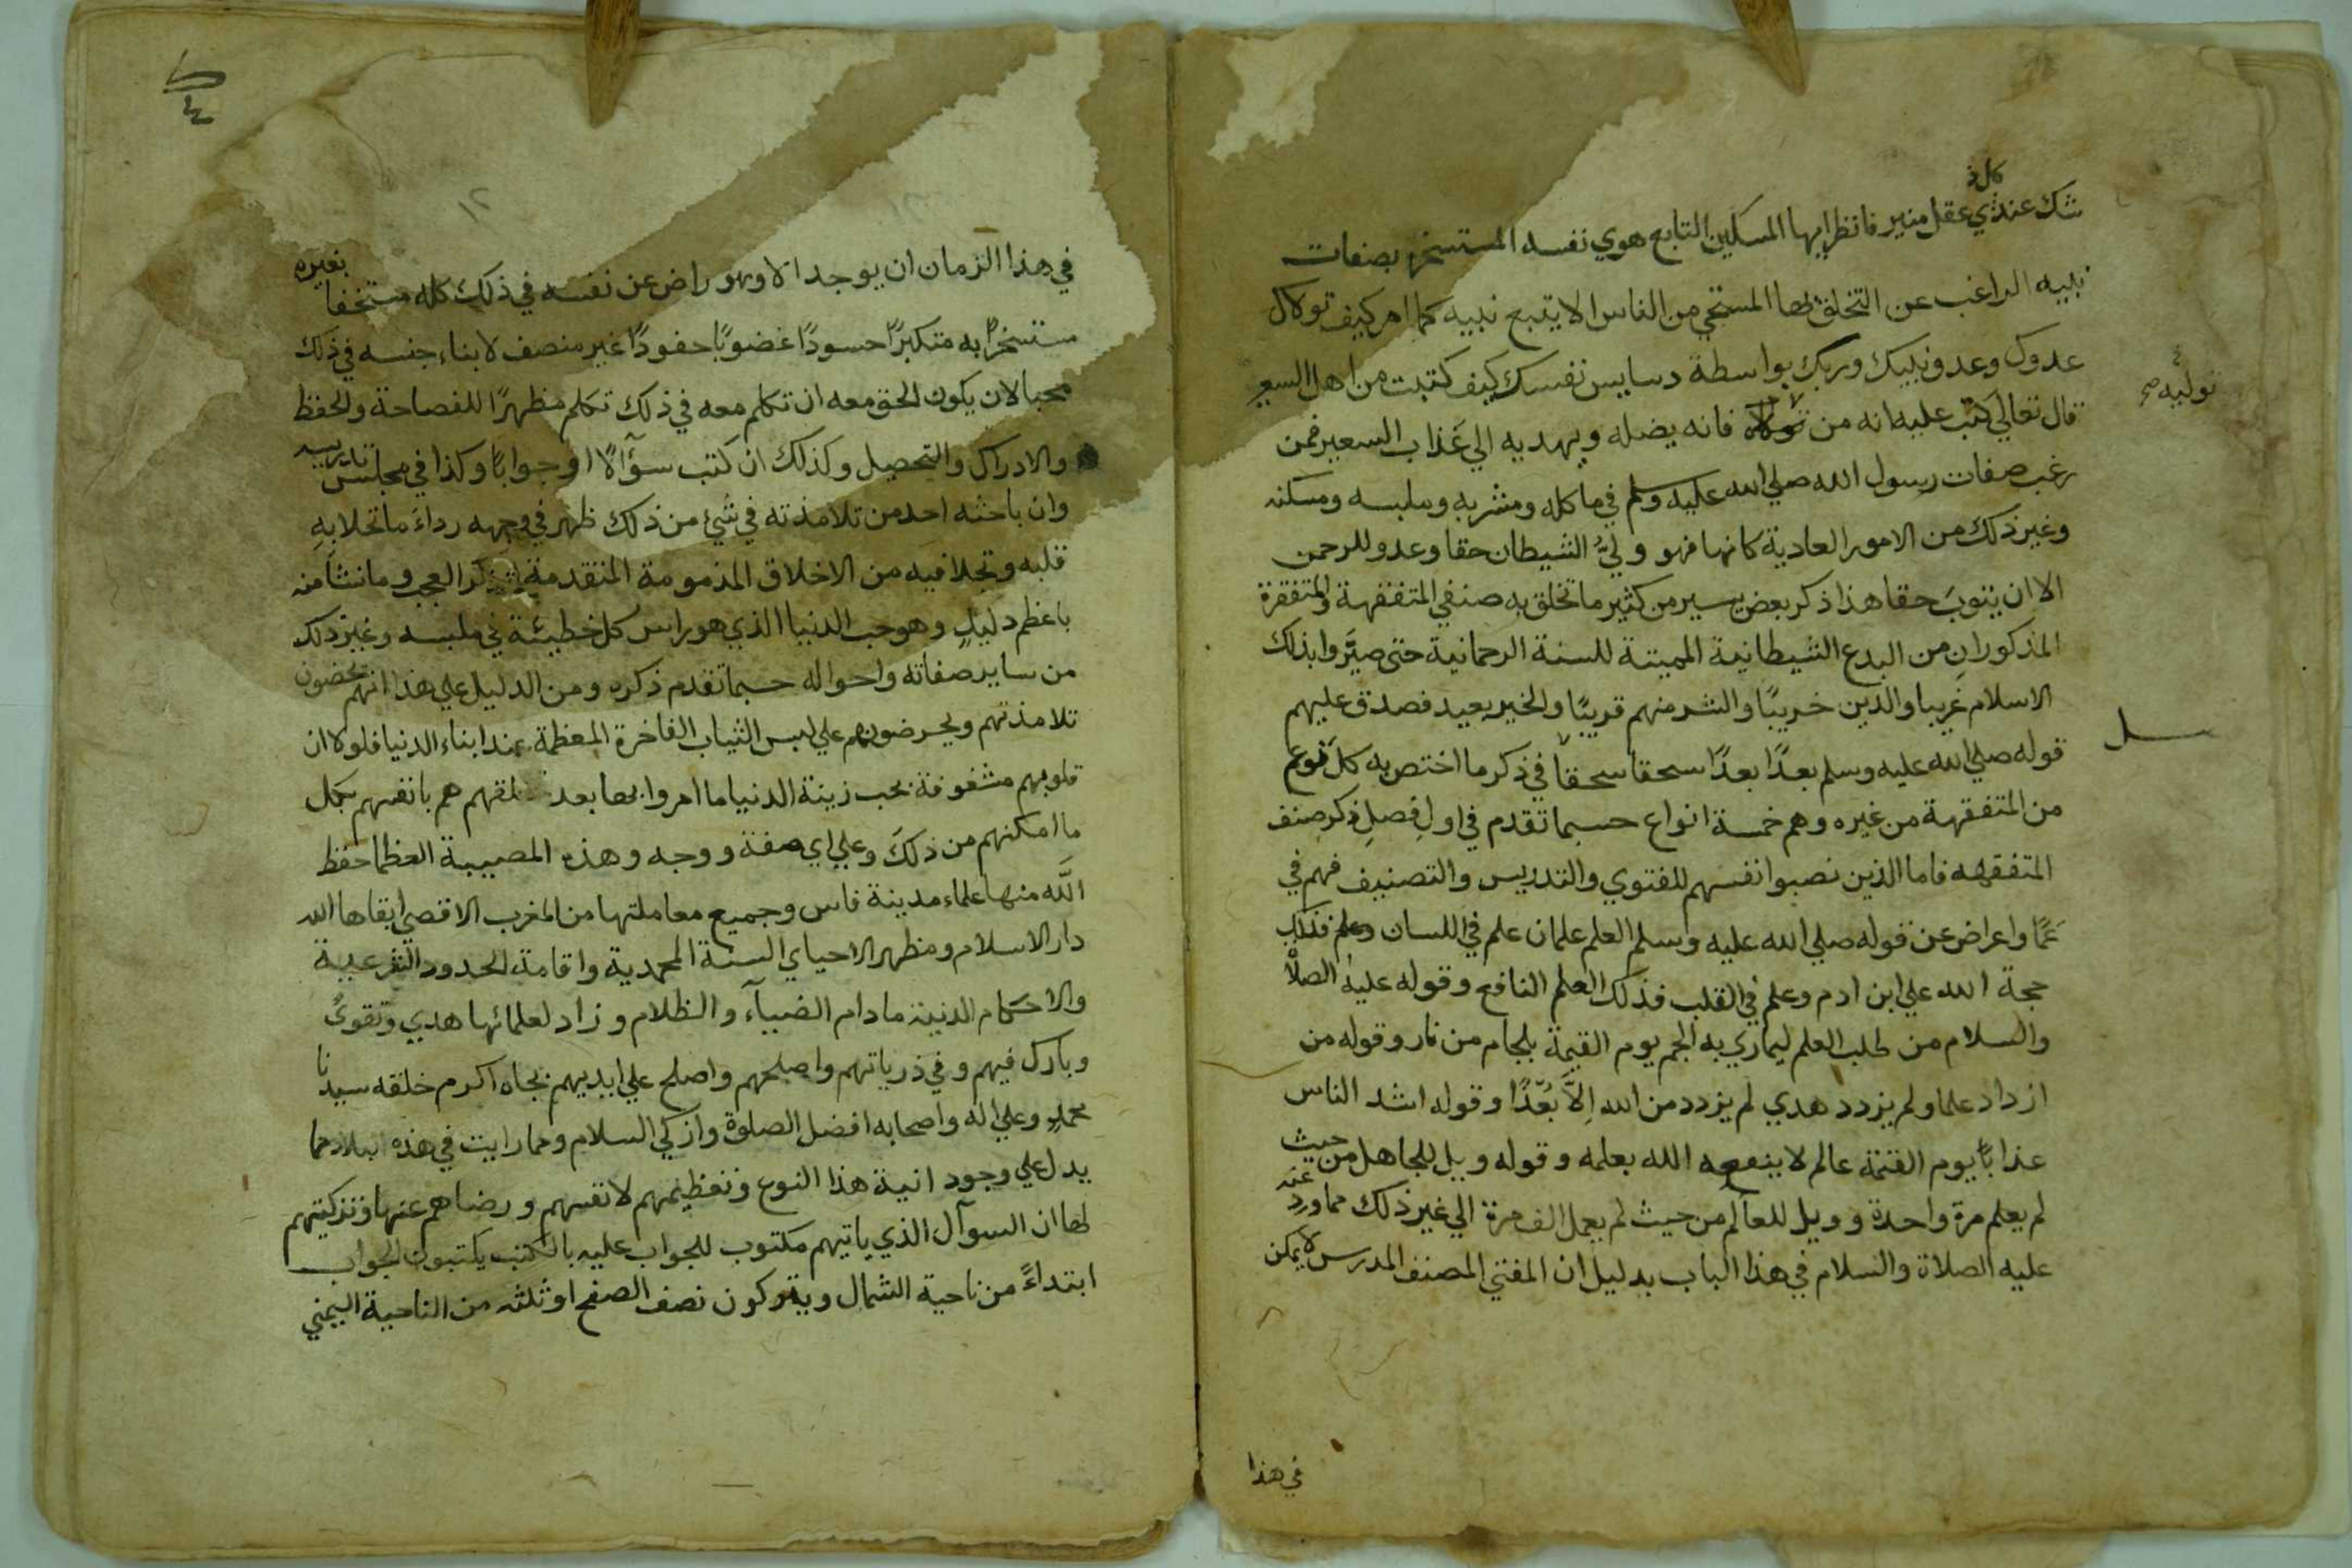 كل ذ
شك عند ذي عقل منير فانظر ايها المسكين التابع هوي نفسه المستسخر بصفات
نبيه الراغب عن التخلق بها المستحي من الناس الا يتبع نبيه كما امر كيف تولاك
عدوك وعدو نبيك وربك بواسطة دسايس نفسك كيف كتبت من اهل السعير
توليه صح
قال تعالي كتب عليه انه من تولاه فانه يضله ويهديه الي عذاب السعير فمن
رغب صفات رسول الله صلي الله عليه وسلم في ماكله ومشربه وملبسه ومسكنه
وغير ذلك من الامور العادية كانها فهو وليُّ الشيطان حقا وعدو للرحمن
الا ان يتوبَ حقا هذا ذكر بعض يسير من كثير ما تخلق به صنفي المتفقهة والمتفقرة
المذكورانِ من البدع الشيطانية المميتة للسنة الرحمانية حتى صيَّروا بذلك
الاسلام غريبا والدين خريبًا والشر منهم قريبًا والخير بعيد فصدق عليهم
قوله صلي الله عليه وسلم بعدًا بعدًا سحقا سحقا في ذكر ما اختص به كل نوع
من المتفقهة من غيره وهم خمسة انواع حسبما تقدم في اول فصلِ ذكر صنف
المتفقهه فاما الذين نصبوا انفسهم للفتوي والتدريس والتصنيف فهم في
عمًا واعراض عن قوله صلي الله عليه وسلم العلم علمان علم في اللسان فذلك
حجة الله علي ابن ادم وعلم في القلب فذلك العلم النافع وقوله عليه الصلاة
والسلام من طلب العلم ليماري به الجم يوم القيمة بلجام من نار وقوله من
ازداد علما ولم يزدد هدي لم يزدد من الله اِلاَّ بُعْدًا وقوله اشد الناس
عذابًا يوم القيمة عالم لا ينفعه الله بعلمه وقوله ويل للجاهل من حيث
لم يعلم مرة واحدة وويل للعالم من حيث لم يعمل الف مرة الي غير ذلك مما ورد عنه
عليه الصلاة والسلام في هذا الباب بدليل ان المفتي المصنف المدرس لا يمكن
في هذا
١٢
في هذا الزمان ان يوجد الا وهو راض عن نفسه في ذلك كله مستخفا بغيره
مستسخرًا به متكبرًا حسودًا غضوبًا حقودًا غير منصف لابناء جنسه في ذلك
محبا لان يكون الحق معه ان تكلم معه في ذلك تكلم مظهرًا للفصاحة والحفظ
والادراك والتحصيل وكذلك ان كتب سؤآلًا او جوابًا وكذا في مجلس تدريسه
وان باحثه احد من تلامذته في شئ من ذلك ظهر في وجهه رداءَ ما تخلا به
قلبه وتخلا فيه من الاخلاق المذمومة المتقدمة ذكر العجب وما نشأ منه
باعظم دليلٍ وهو حب الدنيا الذي هو راس كل خطيئة في ملبسه وغير ذلك
من ساير صفاته واحواله حسبما تقدم ذكره ومن الدليل علي هذا انهم يحضون
تلامذتهم ويحرضونهم علي لبس الثياب الفاخرة المعظمة عند ابناء الدنيا فلولا ان
قلوبهم مشغوفة بحب زينة الدنيا ما امروا بها بعد تخلقهم هم بانفسهم بكل
ما امكنهم من ذلكَ وعلي اي صفة ووجه وهذه المصيبة العظما حفظ
اللَّه منها علماء مدينة فاس وجميع معاملتها من المغرب الاقصي ابقاها الله
دار الاسلام ومظهر الاحياي السنة المحمدية واقامة الحدود الشرعية
والاحكام الدينية ما دام الضيآء والظلام وزاد لعلمائها هدي وتقويً
وبارك فيهم وفي ذرياتهم واصلحهم واصلح علي ايديهم بجاه اكرم خلقه سيدنا
محمدٍ وعلي اله واصحابه افضل الصلوة وازكي السلام ومما رايت في هذه البلاد مما
يدل علي وجود انية هذا النوع وتعظيمهم لانفسهم ورضاهم عنها وتزكيتهم
لها ان السوآل الذي ياتيهم مكتوب للجواب عليه بالكتب يكتبون الجواب
ابتداءً من ناحية الشمال ويتركون نصف الصفح او ثلثه من الناحية اليمني